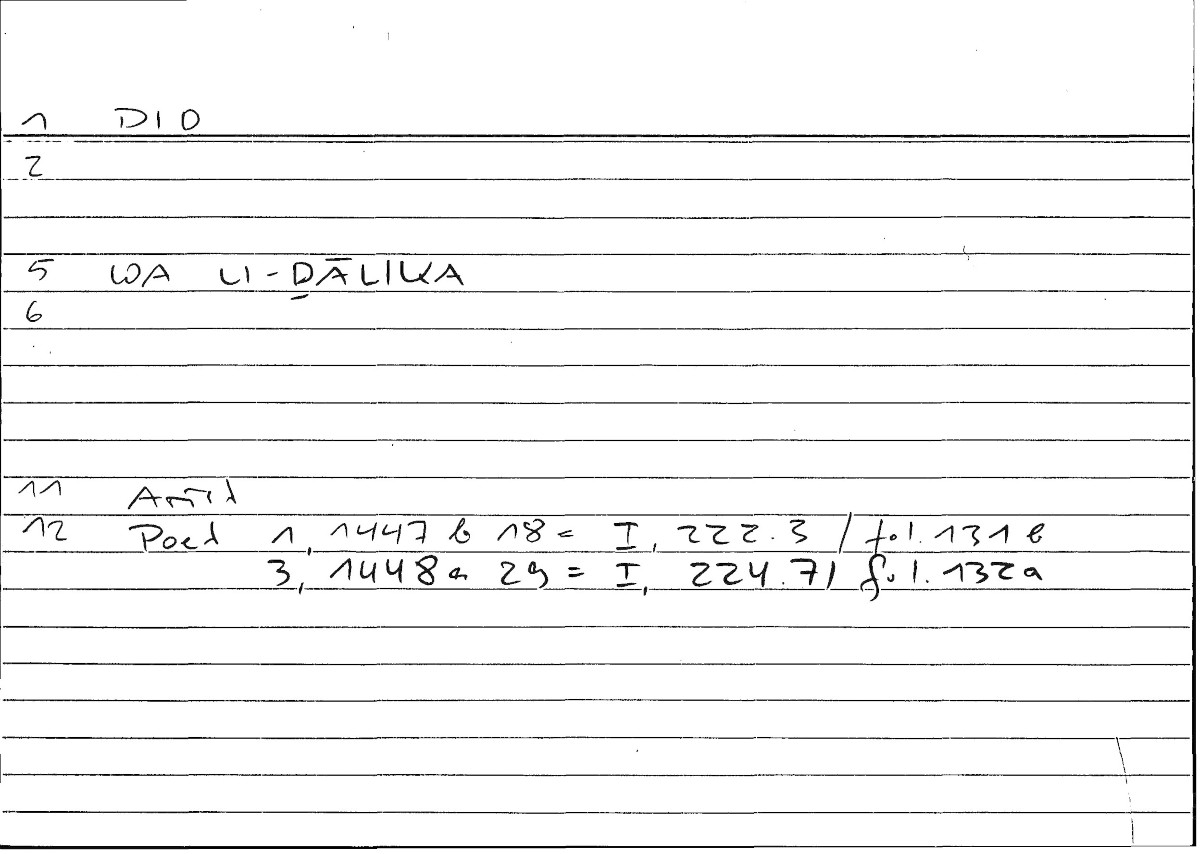 1 DIO
2
5 WA LI-ḎĀLIKA
6
11 Arist
12 Poet 1, 1447 b 18 = I, 222.3 / fol. 131 b
3, 1448 a 29 = I, 224.7 / fol. 132a